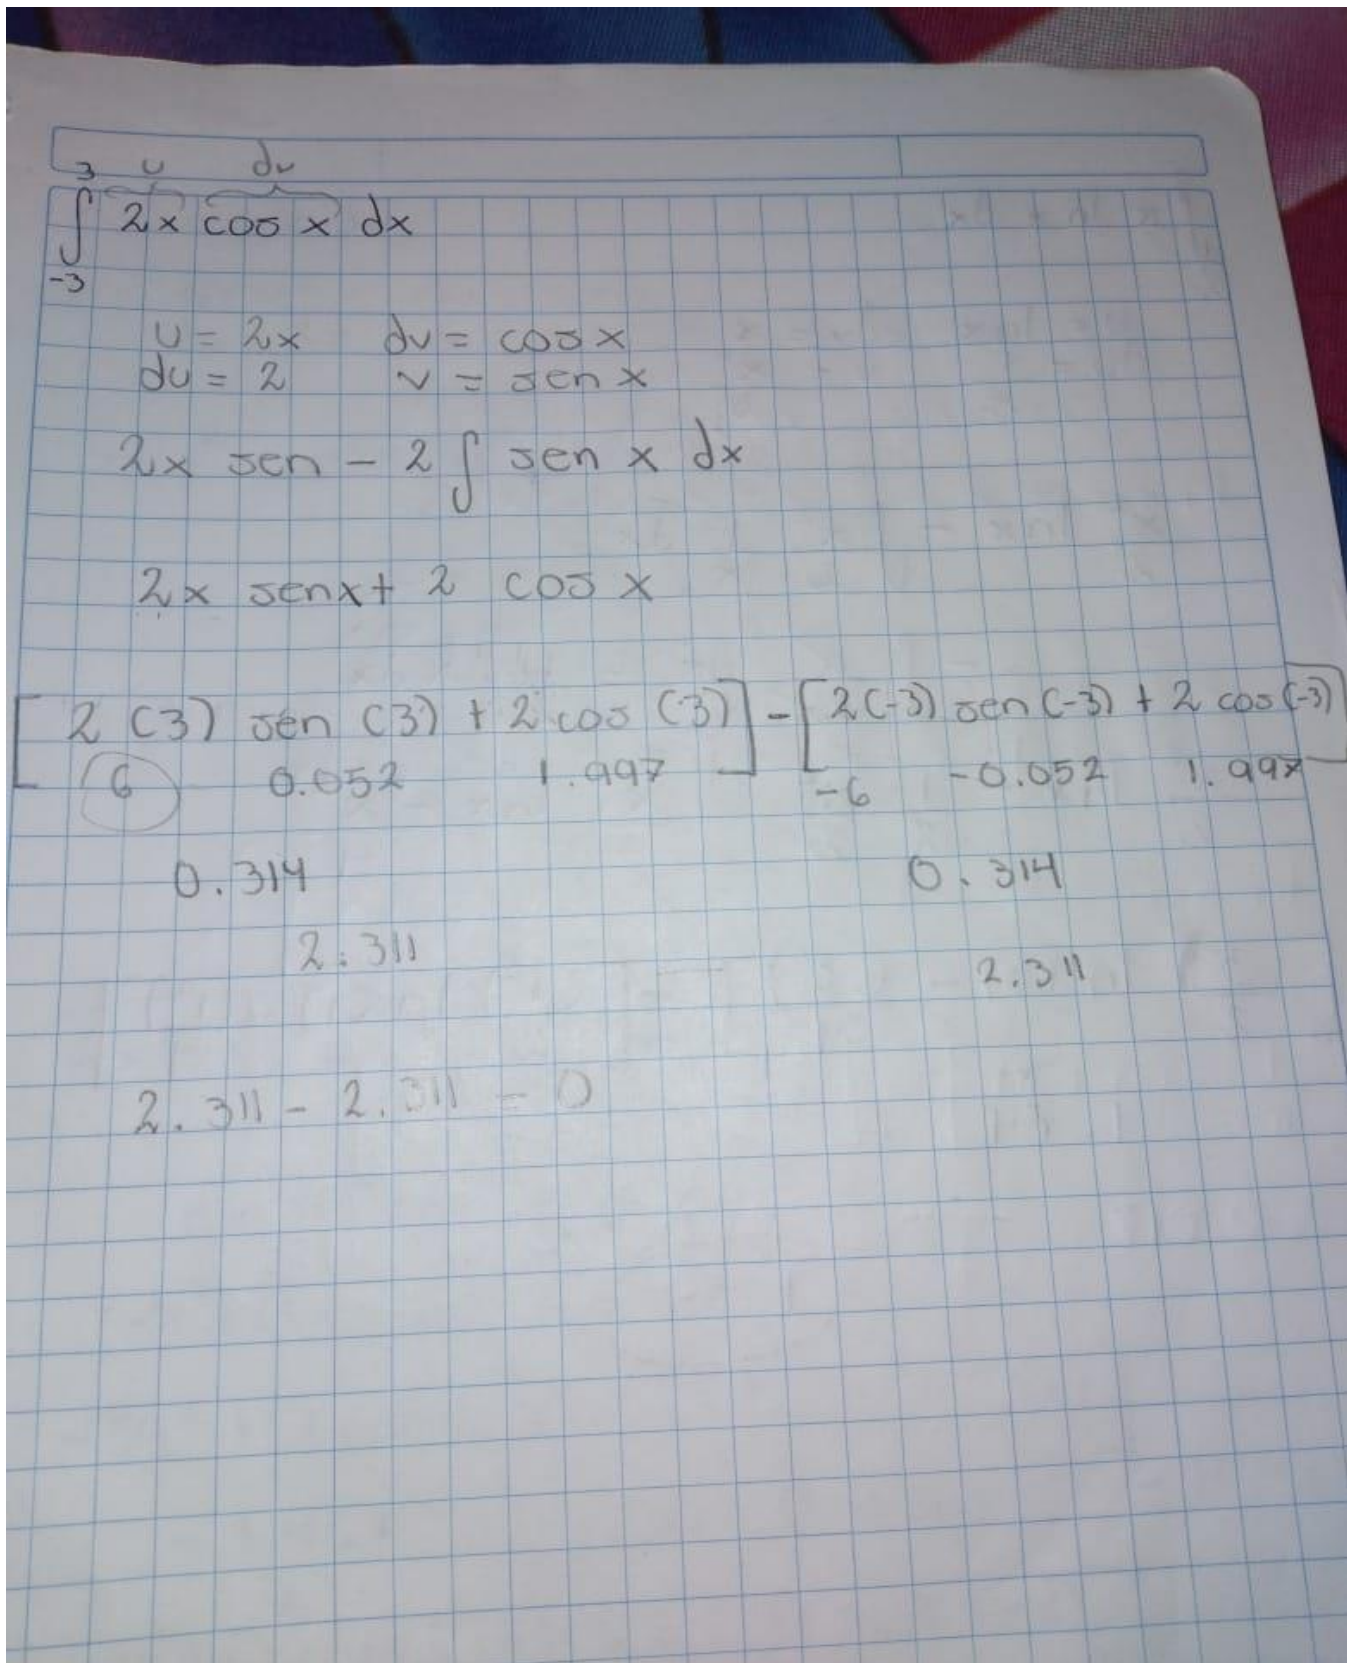 3 u dv
∫ 2x cos x dx
-3
u = 2x dv = cos x
du = 2 v = sen x
2x sen - 2 ∫ sen x dx
2x senx + 2 cos x
[2 (3) sen (3) + 2 cos (3)] - [2(-3) sen (-3) + 2 cos (-3)]
6 0.052 1.997 -6 -0.052 1.997
0.314 0.314
2.311 2.311
2.311 - 2.311 = 0